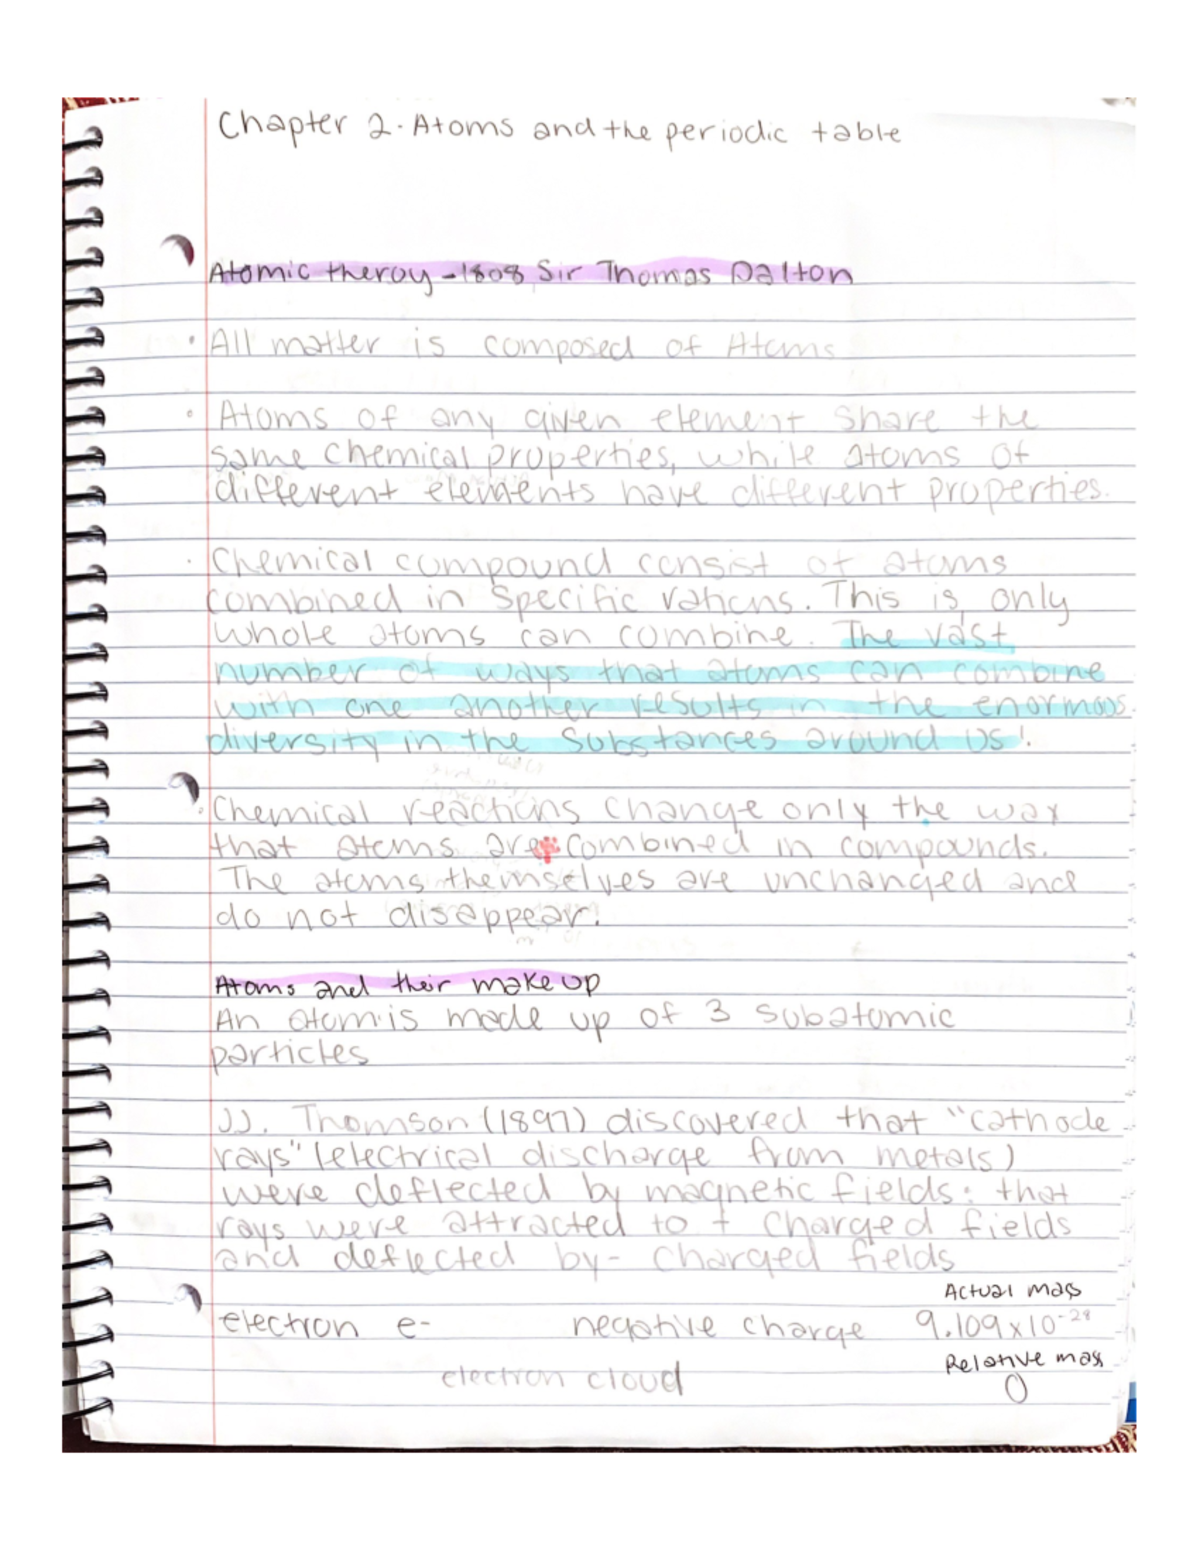 Chapter 2. Atoms and the periodic table
Atomic theroy - 1808 Sir Thomas Dalton
• All matter is composed of Atoms
• Atoms of any given element share the
same chemical properties, while atoms of
different elements have different properties.
• Chemical compound consist of atoms
combined in specific rations. This is only
whole atoms can combine. The vast
number of ways that atoms can combine
with one another results in the enormous
diversity in the substances around us!
• Chemical reactions change only the way
that atoms are combined in compounds.
The atoms themselves are unchanged and
do not disappear.
Atoms and their make up
An atom is made up of 3 subatomic
particles
JJ. Thomson (1897) discovered that "cathode
rays" (electrical discharge from metals)
were deflected by magnetic fields: that
rays were attracted to + charged fields
and deflected by - charged fields
Actual mass
electron e- negative charge 9.109x10-28
Relative mass
electron cloud 0